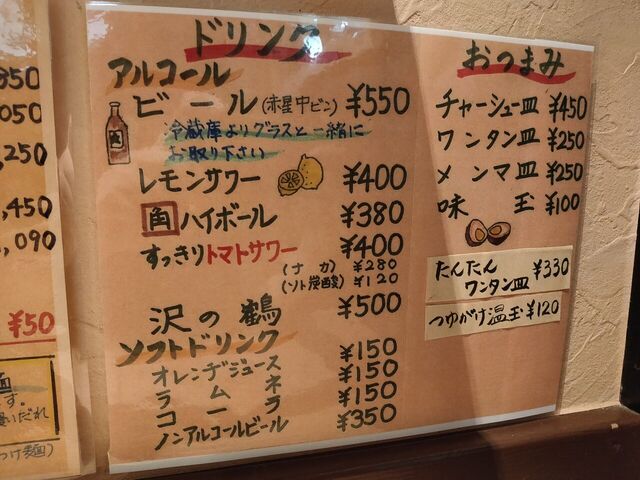 350
050
,250
,450
,090
¥50
ドリンク
アルコール
ビール(赤星中ビン) ¥550
冷蔵庫よりグラスと一緒に
お取り下さい
レモンサワー ¥400
角ハイボール ¥380
すっきりトマトサワー ¥400
(ナカ) ¥280
(ソト炭酸) ¥120
沢の鶴 ¥500
ソフトドリンク
オレンヂジュース ¥150
ラムネ ¥150
コーラ ¥150
ノンアルコールビール ¥350
おつまみ
チャーシュー皿 ¥450
ワンタン皿 ¥250
メンマ皿 ¥250
味玉 ¥100
たんたん
ワンタン皿 ¥330
つゆがけ温玉 ¥120